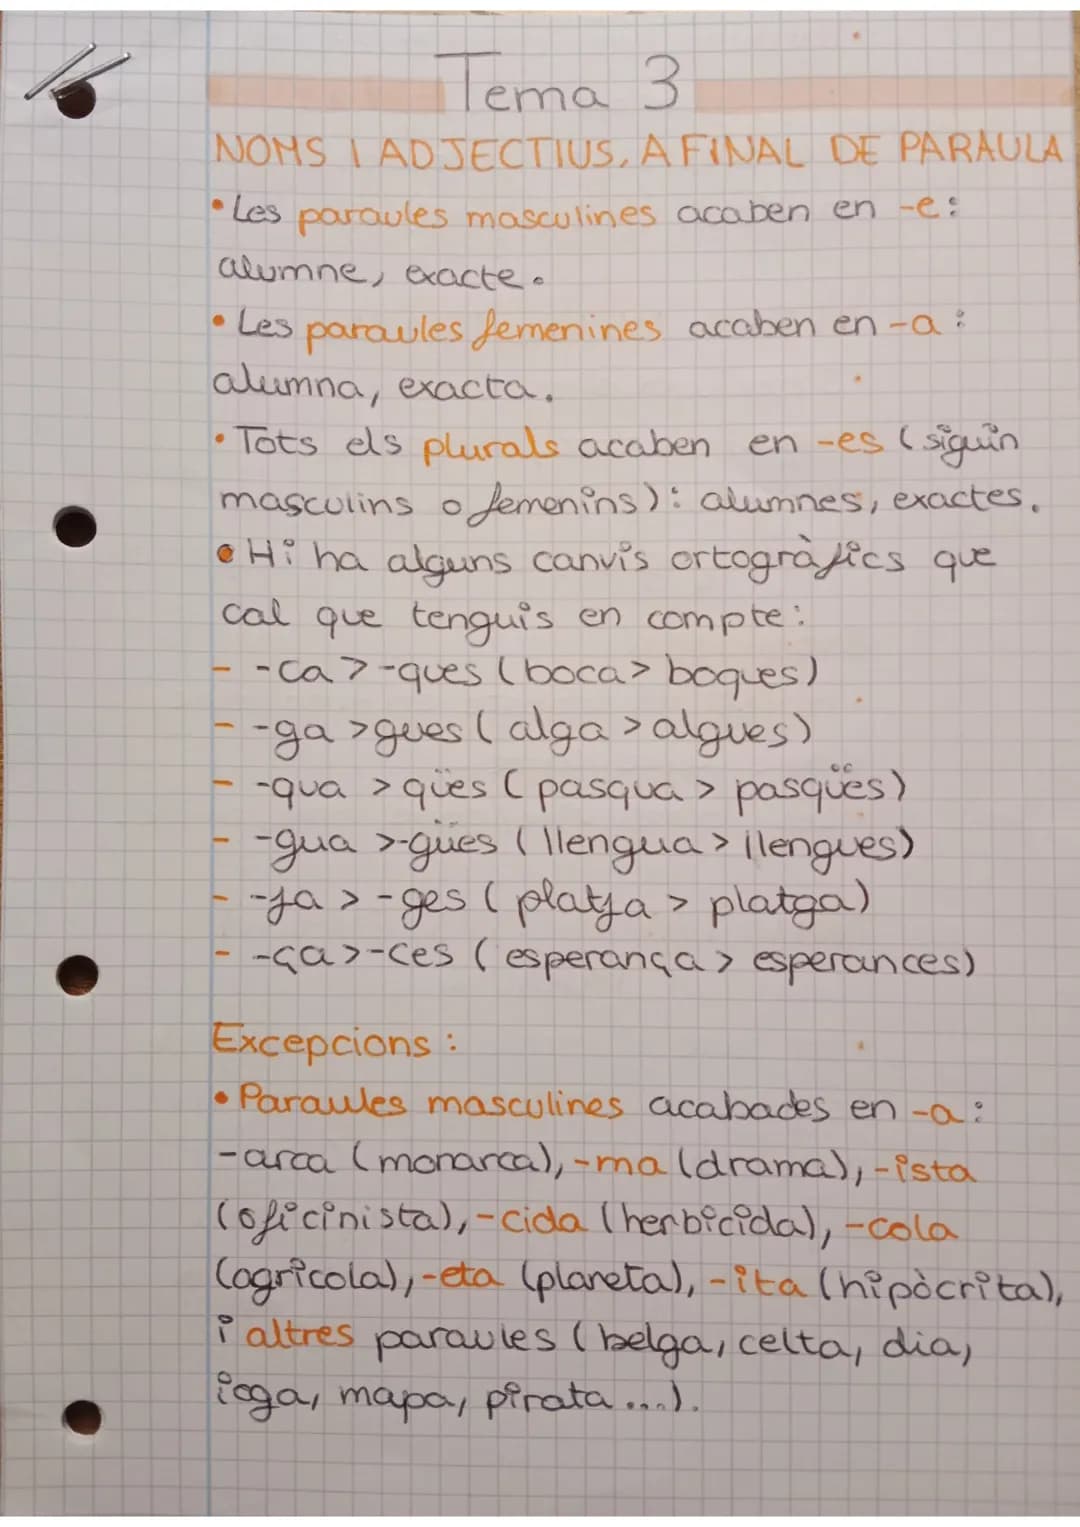 Tema 3
NOMS I ADJECTIUS. A FINAL DE PARAULA
• Les paraules masculines acaben en -e:
alumne, exacte.
• Les paraules femenines acaben en -a:
alumna, exacta.
• Tots els plurals acaben en -es (siguin
masculins o femenins): alumnes, exactes.
• Hi ha alguns canvis ortogràfics que
cal que tenguis en compte:
- -ca > -ques (boca > boques)
- -ga > gues (alga > algues)
- -qua > qües (pasqua > pasqües)
- -gua > -gües (llengua > llengues)
- -ja > -ges (platja > platga)
- -ça > -ces (esperança > esperances)
Excepcions:
• Paraules masculines acabades en -a:
-arca (monarca), -ma (drama), -ista
(oficinista), -cida (herbicida), -cola
(agrícola), -eta (planeta), -ita (hipòcrita),
i altres paraules (belga, celta, dia,
ioga, mapa, pirata ...).